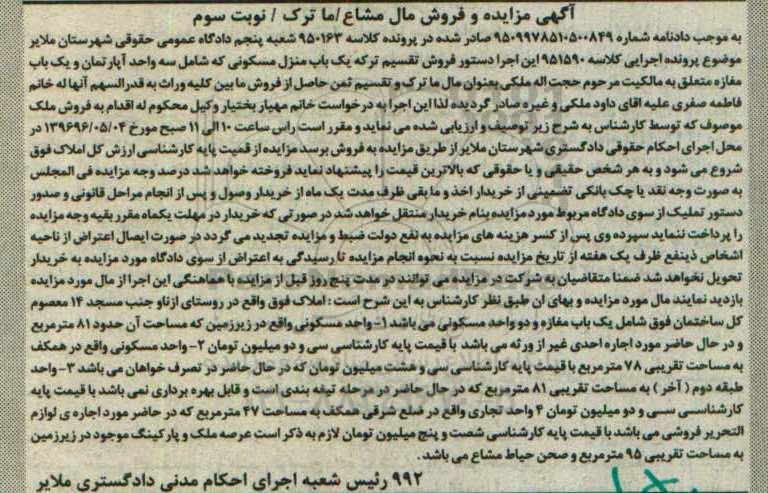 آگهی مزایده و فروش مال مشاع/ما ترک / نوبت سوم
به موجب دادنامه شماره ۹۵۰۹۹۷۸۵۱۰۵۰۰۸۴۹ صادر شده در پرونده کلاسه ۹۵۰۱۶۳ شعبه پنجم دادگاه عمومی حقوقی شهرستان ملایر
موضوع پرونده اجرایی کلاسه ۹۵۱۵۹۰ این اجرا دستور فروش تقسیم ترکه یک باب منزل مسکونی که شامل سه واحد آپارتمان و یک باب
مغازه متعلق به مالکیت مرحوم حجت اله ملکی بعنوان مال ما ترک و تقسیم ثمن حاصل از فروش ما بین کلیه وراث به قدرالسهم آنها له خانم
فاطمه صفری علیه اقای داود ملکی و غیره صادر گردیده لذا این اجرا به درخواست خانم مهیار بختیار وکیل محکوم له اقدام به فروش ملک
موصوف که توسط کارشناس به شرح زیر توصیف و ارزیابی شده می نماید و مقرر است راس ساعت ۱۰ الی ۱۱ صبح مورخ ۱۳۹۶۹۶/۰۵/۰۴ در
محل اجرای احکام حقوقی دادگستری شهرستان ملایر از طریق مزایده به فروش برسد مزایده از قمیت پایه کارشناسی ارزش کل املاک فوق
شروع می شود و به هر شخص حقیقی و یا حقوقی که بالاترین قیمت را پیشنهاد نماید فروخته خواهد شد درصد وجه مزایده فی المجلس
به صورت وجه نقد یا چک بانکی تضمینی از خریدار اخذ و ما بقی ظرف مدت یک ماه از خریدار وصول و پس از انجام مراحل قانونی و صدور
دستور تملیک از سوی دادگاه مربوط مورد مزایده بنام خریدار منتقل خواهد شد در صورتی که خریدار در مهلت یکماه مقرر بقیه وجه مزایده
را پرداخت ننماید سپرده وی پس از کسر هزینه های مزایده به نفع دولت ضبط و مزایده تجدید می گردد در صورت ایصال اعتراض از ناحیه
اشخاص ذینفع ظرف یک هفته از تاریخ مزایده نسبت به نحوه انجام مزایده تا رسیدگی به اعتراض از سوی دادگاه مورد مزایده به خریدار
تحویل نخواهد شد ضمنا متقاضیان به شرکت در مزایده می توانند در مدت پنج روز قبل از مزایده با هماهنگی این اجرا از مال مورد مزایده
بازدید نمایند مال مورد مزایده و بهای ان طبق نظر کارشناس به این شرح است : املاک فوق واقع در روستای ازناو جنب مسجد ۱۴ معصوم
کل ساختمان فوق شامل یک باب مغازه و دو واحد مسکونی می باشد ۱- واحد مسکونی واقع در زیرزمین که مساحت آن حدود ۸۱ مترمربع
و در حال حاضر مورد اجاره احدی غیر از ورثه می باشد با قیمت پایه کارشناسی سی و دو میلیون تومان ۲- واحد مسکونی واقع در همکف
به مساحت تقریبی ۷۸ مترمربع با قیمت پایه کارشناسی سی و هشت میلیون تومان که در حال حاضر در تصرف خواهان می باشد ۳- واحد
طبقه دوم ( آخر ) به مساحت تقریبی ۸۱ مترمربع که در حال حاضر در مرحله تیغه بندی است و قابل بهره برداری نمی باشد با قیمت پایه
کارشناسسی سی و دو میلیون تومان ۴ واحد تجاری واقع در ضلع شرقی همکف به مساحت ۴۷ مترمربع که در حاضر مورد اجاره ی لوازم
التحریر فروشی می باشد با قیمت پایه کارشناسی شصت و پنج میلیون تومان لازم به ذکر است عرصه ملک و پارکینگ موجود در زیرزمین
به مساحت تقریبی ۹۵ مترمربع و صحن حیاط مشاع می باشد .
۹۹۲ رئیس شعبه اجرای احکام مدنی دادگستری ملایر